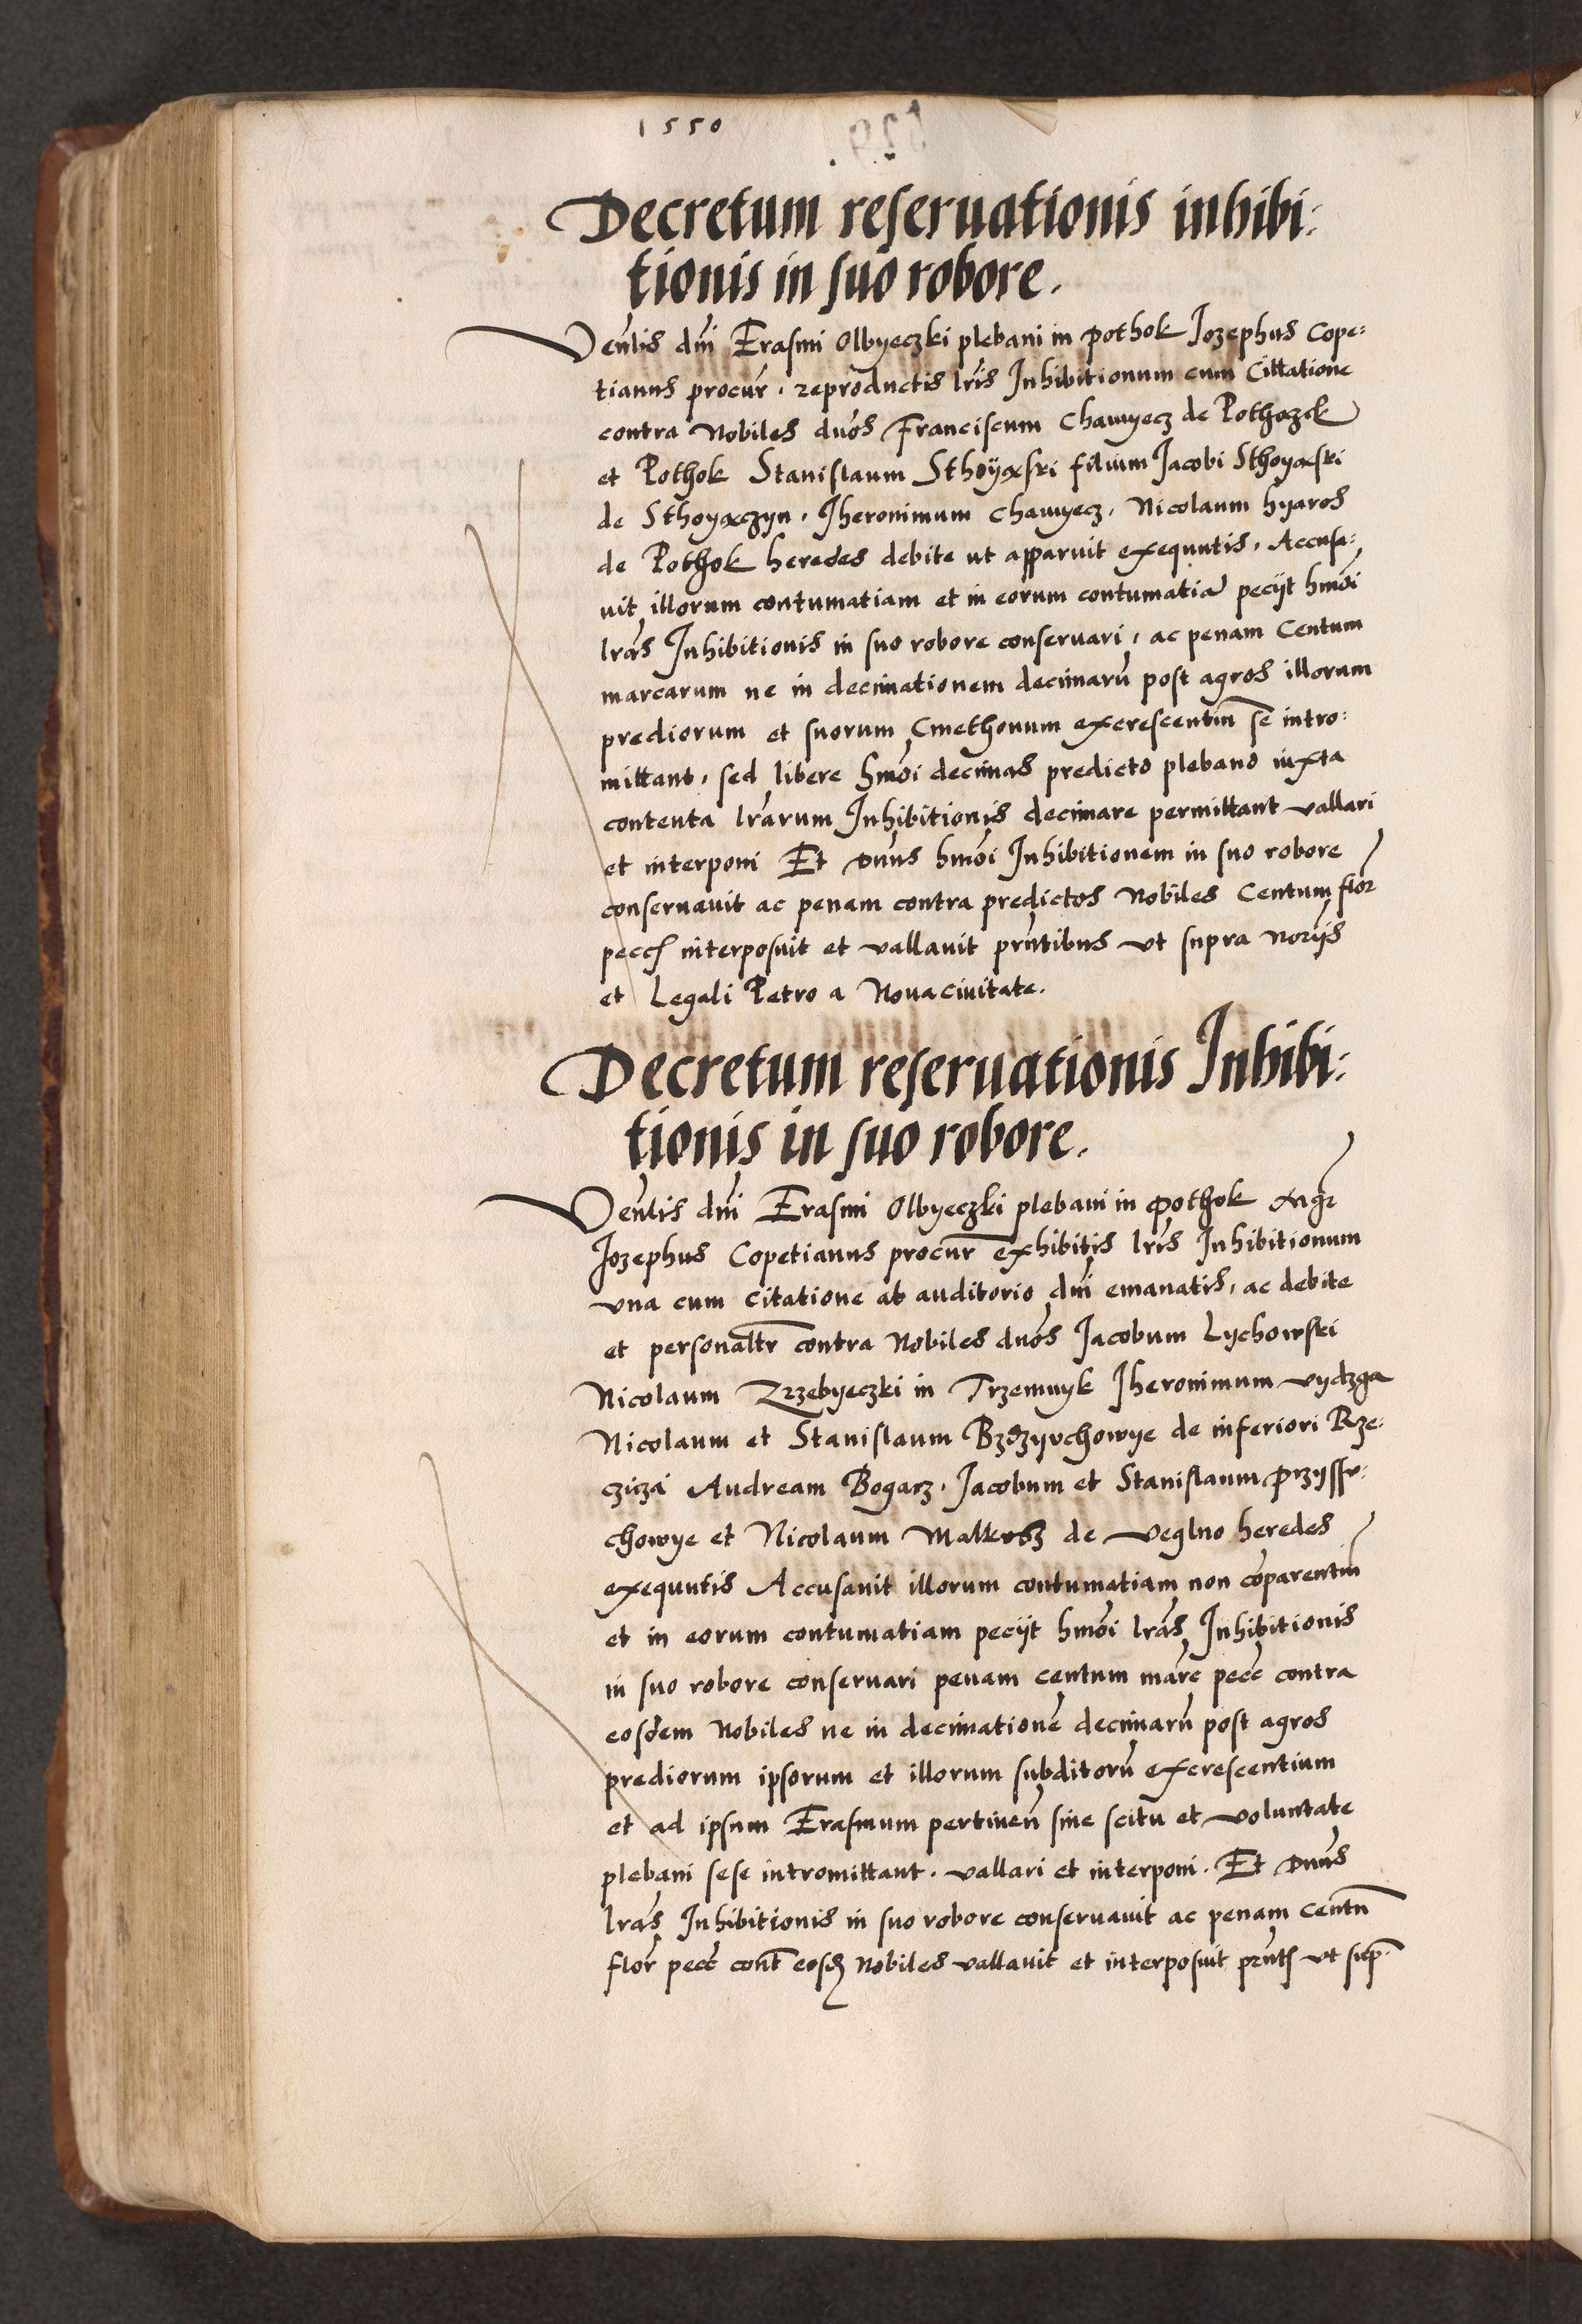 1550
Decretum reseruationis inhibi:
tionis in suo robore.
Venlis dni Erasmi Olbyeczki plebani in pothok Jozephus Cope:
tianus procur. reproductis lris Inhibitionum cum Cittatione
contra Nobiles dnos Franciscum Chamyecz de Pothozek
et Pothok Stanislaum Sthoyaski filium Jacobi Sthoyaski
de Sthoyaczyn. Jheronimum Chamyecz. Nicolaum hyaros
de Pothok heredes debite ut apparuit exequutis. Accusa:
uit illorum contumatiam et in eorum contumatia peciit hmoi
lras Inhibitionis in suo robore conseruari, ac penam Centum
marcarum ne in decimationem decimaru post agros illorum
prediorum et suorum Cmethonum excrescentiu se intro:
mittant, sed libere hmoi decimas predicto plebano iuxta
contenta lrarum Inhibitionis decimare permittant vallari
et interponi Et Dnus hmoi Inhibitionem in suo robore
conseruauit ac penam contra predictos Nobiles Centum flor
pecc interposuit et vallauit prntibus vt supra noriis
et Legali Petro a Noua ciuitate.
Decretum reseruationis Inhibi:
tionis in suo robore.
Venlis dni Erasmi Olbyeczki plebani in pothok Mgr
Jozephus Copetianus procur exhibitis lris Inhibitionum
vna cum citatione ab auditorio dni emanatis, ac debite
et personaltr contra Nobiles dnos Jacobum Lychowski
Nicolaum Zrzebyeczki in Trzemnyk Jheronimum vydzga
Nicolaum et Stanislaum Bzdzyvchowye de inferiori Rze:
czicza Andream Bogarz. Jacobum et Stanislaum
chowye et Nicolaum de veglno heredes
exequutis Accusauit illorum contumatiam non coparentiu
et in eorum contumatiam peciit hmoi lras Inhibitionis
in suo robore conseruari penam centum marc pecc contra
eosdem Nobiles ne in decimatione decimaru post agros
prediorum ipsorum et illorum subditoru excrescentium
et ad ipsum Erasmum pertinen sine scitu et voluntate
plebani sese intromittant. vallari et interponi. Et Dnus
lras Inhibitionis in suo robore conseruauit ac penam centu
flor pecc cont eosd Nobiles vallauit et interposuit prnts vt sup.